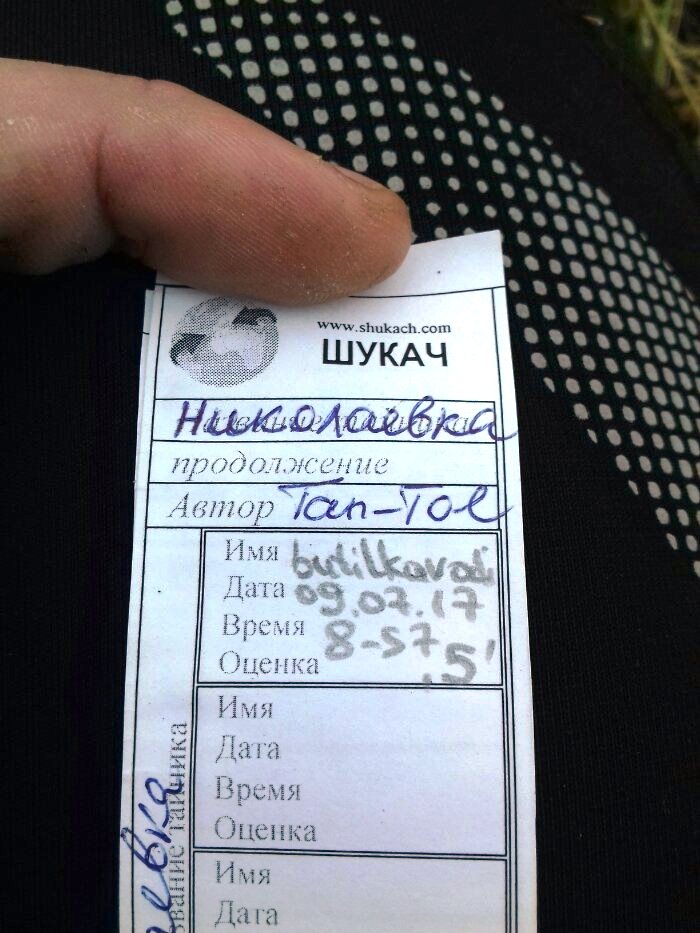 www.shukach.com
ШУКАЧ
Николаевка
продолжение
Автор Tan-Tol
Имя butilkavodi
Дата 09.07.17
Время 8-57
Оценка "5"
Имя
Дата
Время
Оценка
Имя
Дата
тайника